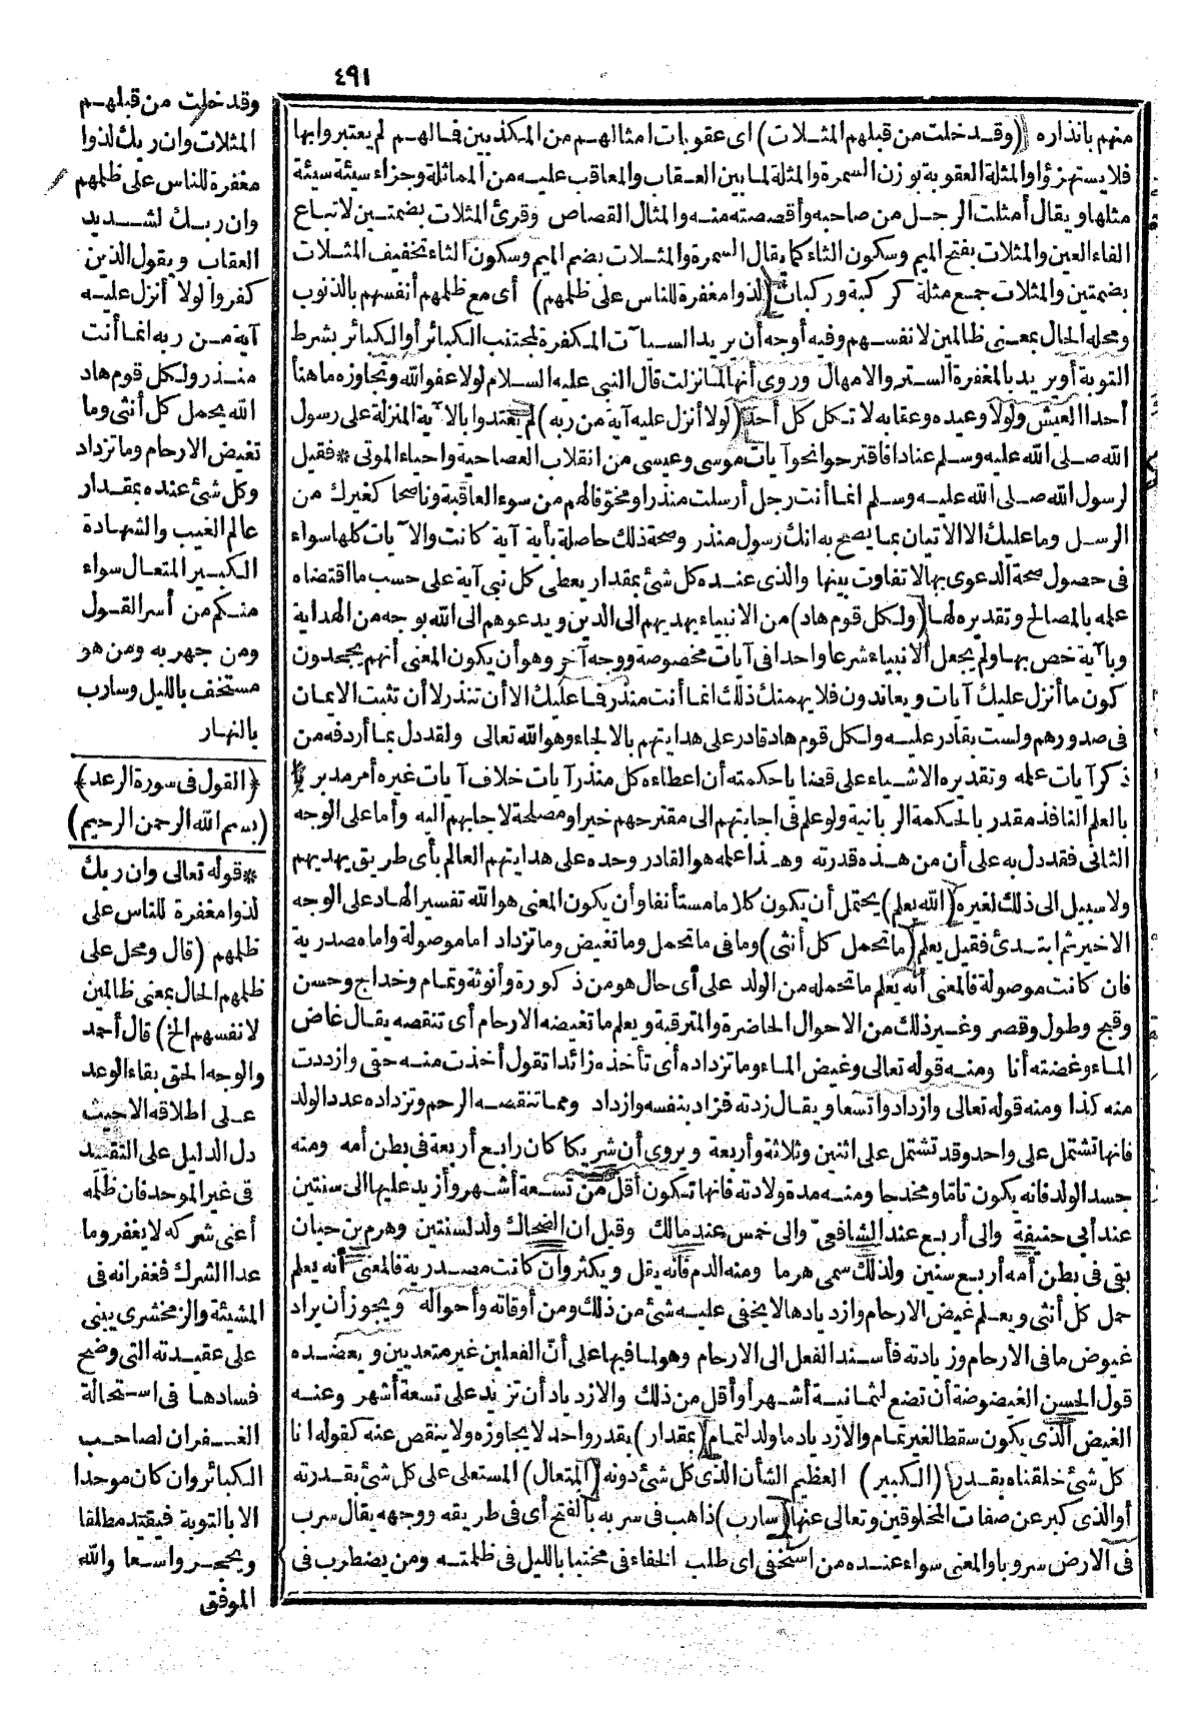 ٤٩١
منهم بانذاره (وقد خلت من قبلهم المثلات) اى عقوبات امثالهم من المكذبين فالهم لم يعتبروا بها
فلا يستهزؤا والمثلة العقوبة بوزن السمرة والمثلة لما بين العقاب والمعاقب عليه من المماثلة وجزاء سيئة سيئة
مثلها ويقال أمثلت الرجل من صاحبه وأقصصته منه والمثال القصاص وقرئ المثلات بضمتين لاتباع
الفاء العين والمثلات بفتح الميم وسكون الثاء كما يقال السمرة والمثلات بضم الميم وسكون الثاء تخفيف المثلات
بضمتين والمثلات جمع مثلة كركبة وركبات (لذوا مغفرة للناس على ظلمهم) أى مع ظلمهم أنفسهم بالذنوب
ومحله الحال بمعنى ظالمين لانفسهم وفيه أوجه أن يريد السيآت المكفرة لمجتنب الكبائر أو الكبائر بشرط
التوبة أو يريد بالمغفرة الستر والامهال وروى أنها لما نزلت قال النبى عليه السلام لولا عفو الله وتجاوزه ماهنأ
أحدا العيش ولولا وعيده وعقابه لاتكل كل أحد (لولا أنزل عليه آية من ربه) لم يعتدوا بالآية المنزلة على رسول
الله صلى الله عليه وسلم عنادا فاقترحوا نحو آيات موسى وعيسى من انقلاب العصا حية واحياء الموتى * فقيل
لرسول الله صلى الله عليه وسلم انما أنت رجل أرسلت منذرا ومخوفا لهم من سوء العاقبة وناصحا كغيرك من
الرسل وما عليك الا الاتيان بما يصح به انك رسول منذر وصحة ذلك حاصلة بأية آية كانت والآيات كلها سواء
فى حصول صحة الدعوى بها لا تفاوت بينها والذى عنده كل شئ بمقدار يعطى كل نبى آية على حسب ما اقتضاه
علمه بالمصالح وتقديره لها (ولكل قوم هاد) من الانبياء يهديهم الى الدين ويدعوهم الى الله بوجه من الهداية
وبآية خص بها ولم يجعل الانبياء شرعا واحدا فى آيات مخصوصة ووجه آخر وهو أن يكون المعنى أنهم يجحدون
كون ما أنزل عليك آيات ويعاندون فلا يهمنك ذلك انما أنت منذر فما عليك الا أن تنذر لا أن تثبت الايمان
فى صدورهم ولست بقادر عليه ولكل قوم هاد قادر على هدايتهم بالالجاء وهو الله تعالى ولقد دل بما أردفه من
ذكر آيات علمه وتقديره الاشياء على قضايا حكمته أن اعطاءه كل منذر آيات خلاف آيات غيره أمر مدبر
بالعلم النافذ مقدر بالحكمة الربانية ولو علم فى اجابتهم الى مقترحهم خيرا ومصلحة لاجابهم اليه وأما على الوجه
الثانى فقد دل به على أن من هذه قدرته وهذا علمه هو القادر وحده على هدايتهم العالم بأى طريق يهديهم
ولا سبيل الى ذلك لغيره (الله يعلم) يحتمل أن يكون كلاما مستأنفا وأن يكون المعنى هو الله تفسير الهاد على الوجه
الاخير ثم ابتدئ فقيل يعلم (ما تحمل كل أنثى) وما فى ما تحمل وما تغيض وما تزداد اما موصولة واما مصدرية
فان كانت موصولة فالمعنى أنه يعلم ما تحمله من الولد على أى حال هو من ذكورة وأنوثة وتمام وخداج وحسن
وقبح وطول وقصر وغير ذلك من الاحوال الحاضرة والمترقبة ويعلم ما تغيضه الارحام أى تنقصه يقال غاض
الماء وغضته أنا ومنه قوله تعالى وغيض الماء وما تزداده أى تأخذه زائدا تقول أخذت منه حقى وازددت
منه كذا ومنه قوله تعالى وازدادوا تسعا ويقال زدته فزاد بنفسه وازداد ومما تنقصه الرحم وتزداده عدد الولد
فانها تشتمل على واحد وقد تشتمل على اثنين وثلاثة وأربعة ويروى أن شريكا كان رابع أربعة فى بطن أمه ومنه
جسد الولد فانه يكون تاما ومخدجا ومنه مدة ولادته فانها تكون أقل من تسعة أشهر وأزيد عليها الى سنتين
عند أبى حنيفة والى أربع عند الشافعى والى خمس عند مالك وقيل ان الضحاك ولد لسنتين وهرم بن حيان
بقى فى بطن أمه أربع سنين ولذلك سمى هرما ومنه الدم فانه يقل ويكثر وان كانت مصدرية فالمعنى أنه يعلم
حمل كل أنثى ويعلم غيض الارحام وازديادها لا يخفى عليه شئ من ذلك ومن أوقاته وأحواله ويجوز أن يراد
غيوض ما فى الارحام وزيادته فأسند الفعل الى الارحام وهو لما فيها على أنّ الفعلين غير متعديين ويعضده
قول الحسن الغيضوضة أن تضع لثمانية أشهر أو أقل من ذلك والازدياد أن تزيد على تسعة أشهر وعنه
الغيض الذى يكون سقطا لغير تمام والازدياد ما ولد لتمام (بمقدار) بقدر واحد لا يجاوزه ولا ينقص عنه كقوله انا
كل شئ خلقناه بقدر (الكبير) العظيم الشأن الذى كل شئ دونه (المتعال) المستعلى على كل شئ بقدرته
أو الذى كبر عن صفات المخلوقين وتعالى عنها (سارب) ذاهب فى سربه بالفتح أى فى طريقه ووجهه يقال سرب
فى الارض سروبا والمعنى سواء عنده من استخفى اى طلب الخفاء فى مختبا بالليل فى ظلمته ومن يضطرب فى
وقد خلت من قبلهم
المثلات وان ربك لذوا
مغفرة للناس على ظلمهم
وان ربك لشديد
العقاب ويقول الذين
كفروا لولا أنزل عليه
آية من ربه انما أنت
منذر ولكل قوم هاد
الله يحمل كل أنثى وما
تغيض الارحام وما تزداد
وكل شئ عنده بمقدار
عالم الغيب والشهادة
الكبير المتعال سواء
منكم من أسر القول
ومن جهر به ومن هو
مستخف بالليل وسارب
بالنهار
﴿القول فى سورة الرعد﴾
(بسم الله الرحمن الرحيم)
* قوله تعالى وان ربك
لذوا مغفرة للناس على
ظلمهم (قال ومحل على
ظلمهم الحال بمعنى ظالمين
لانفسهم الخ) قال أحمد
والوجه الحق بقاء الوعد
على اطلاقه الا حيث
دل الدليل على التقييد
فى غير الموحد فان ظلمه
أعنى شركه لا يغفر وما
عدا الشرك فغفرانه فى
المشيئة والزمخشرى يبنى
على عقيدته التى وضح
فسادها فى استحالة
الغفران لصاحب
الكبائر وان كان موحدا
الا بالتوبة فيقيد مطلقا
ويحجر واسعا والله
الموفق